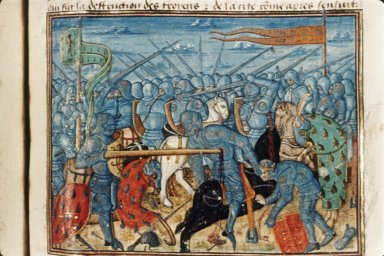 fut la destruction des troyens & de la cite côme apres sensuit